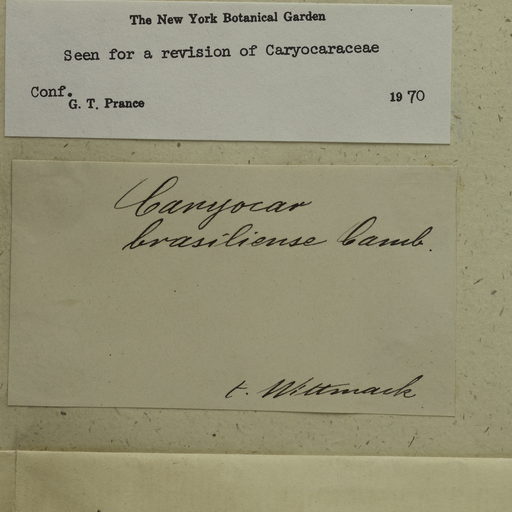 The New York Botanical Garden
Seen for a revision of Caryocaraceae
Conf.
G. T. Prance 1970
Caryocar
brasiliense Camb.
t. Wittmack